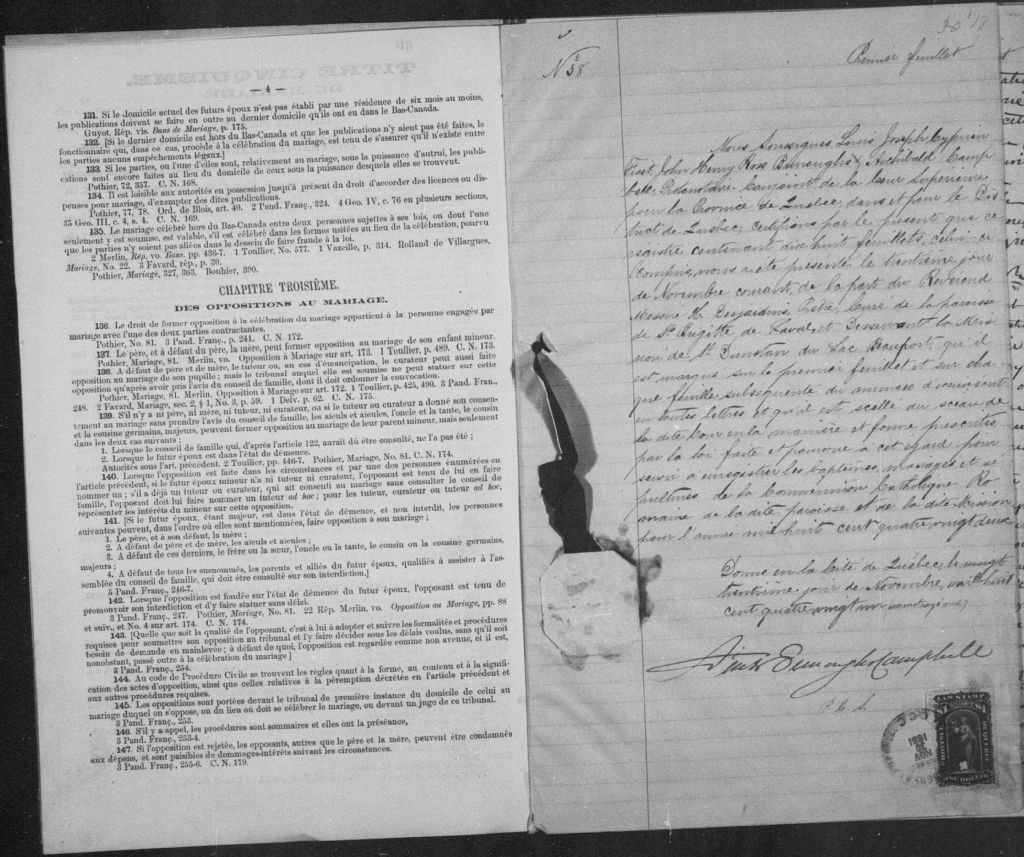 — 4 —
131. Si le domicile actuel des futurs époux n'est pas établi par une résidence de six mois au moins,
les publications doivent se faire en outre au dernier domicile qu'ils ont eu dans le Bas-Canada.
Guyot, Rép. vis. Bans de Mariage, p. 175.
132. [Si le dernier domicile est hors du Bas-Canada et que les publications n'y aient pas été faites, le
fonctionnaire qui, dans ce cas, procède à la célébration du mariage, est tenu de s'assurer qu'il n'existe entre
les parties aucuns empêchements légaux.]
133. Si les parties, ou l'une d'elles sont, relativement au mariage, sous la puissance d'autrui, les publi-
cations sont encore faites au lieu du domicile de ceux sous la puissance desquels elles se trouvent.
Pothier, 72, 357. C. N. 168.
134. Il est loisible aux autorités en possession jusqu'à présent du droit d'accorder des licences ou dis-
penses pour mariage, d'exempter des dites publications.
Pothier, 77, 78. Ord. de Blois, art. 40. 2 Pand. Franç., 324. 4 Geo. IV, c. 76 en plusieurs sections,
35 Geo. III, c. 4, s. 4. C. N. 169.
135. Le mariage célébré hors du Bas-Canada entre deux personnes sujettes à ses lois, ou dont l'une
seulement y est soumise, est valable, s'il est célébré dans les formes usitées au lieu de la célébration, pourvu
que les parties n'y soient pas allées dans le dessein de faire fraude à la loi.
2 Merlin, Rép. vo. Bans. pp. 436-7. 1 Toullier, No. 577. 1 Vazeille, p. 314. Rolland de Villargues,
Mariage, No. 22. 3 Favard, rép., p. 30.
Pothier, Mariage, 327, 363. Bouhier, 390.
CHAPITRE TROISIÈME.
DES OPPOSITIONS AU MARIAGE.
136. Le droit de former opposition à la célébration du mariage appartient à la personne engagée par
mariage avec l'une des deux parties contractantes.
Pothier, No. 81. 3 Pand. Franç., p. 241. C. N. 172.
137. Le père, et à défaut du père, la mère, peut former opposition au mariage de son enfant mineur.
Pothier, Mariage, 81. Merlin, vo. Opposition à Mariage sur art. 173. 1 Toullier, p. 489. C. N. 173.
138. A défaut de père et de mère, le tuteur ou, au cas d'émancipation, le curateur peut aussi faire
opposition au mariage de son pupille ; mais le tribunal auquel elle est soumise ne peut statuer sur cette
opposition qu'après avoir pris l'avis du conseil de famille, dont il doit ordonner la convocation.
Pothier, Mariage, 81. Merlin, Opposition à Mariage sur art. 172. 1 Toullier, p. 425, 490. 3 Pand. Fran.,
248. 2 Favard, Mariage, sec. 2, § 1, No. 3, p. 59. 1 Delv. p. 62. C. N. 175.
139. S'il n'y a ni père, ni mère, ni tuteur, ni curateur, ou si le tuteur ou curateur a donné son consen-
tement au mariage sans prendre l'avis du conseil de famille, les aieuls et aieules, l'oncle et la tante, le cousin
et la cousine germains, majeurs, peuvent former opposition au mariage de leur parent mineur, mais seulement
dans les deux cas suivants :
1. Lorsque le conseil de famille qui, d'après l'article 122, aurait dû être consulté, ne l'a pas été ;
2. Lorsque le futur époux est dans l'état de démence.
Autorités sous l'art. précédent. 2 Toullier, pp. 446-7. Pothier, Mariage, No. 81. C. N. 174.
140. Lorsque l'opposition est faite dans les circonstances et par une des personnes énumérées en
l'article précédent, si le futur époux mineur n'a ni tuteur ni curateur, l'opposant est tenu de lui en faire
nommer un ; s'il a déjà un tuteur ou curateur, qui ait consenti au mariage sans consulter le conseil de
famille, l'opposant doit lui faire nommer un tuteur ad hoc ; pour les tuteur, curateur ou tuteur ad hoc,
représenter les intérêts du mineur sur cette opposition.
141. [Si le futur époux, étant majeur, est dans l'état de démence, et non interdit, les personnes
suivantes peuvent, dans l'ordre où elles sont mentionnées, faire opposition à son mariage ;
1. Le père, et à son défaut, la mère ;
2. A défaut de père et de mère, les aieuls et aieules ;
3. A défaut de ces derniers, le frère ou la sœur, l'oncle ou la tante, le cousin ou la cousine germains,
majeurs ;
4. A défaut de tous les susnommés, les parents et alliés du futur époux, qualifiés à assister à l'as-
semblée du conseil de famille, qui doit être consulté sur son interdiction.]
3 Pand. Franç., 246-7.
142. Lorsque l'opposition est fondée sur l'état de démence du futur époux, l'opposant est tenu de
promouvoir son interdiction et d'y faire statuer sans délai.
3 Pand. Franç., 247. Pothier, Mariage, No. 81. 22 Rép. Merlin, vo. Opposition au Mariage, pp. 88
et suiv., et No. 4 sur art. 174. C. N. 174.
143. [Quelle que soit la qualité de l'opposant, c'est à lui à adopter et suivre les formalités et procédures
requises pour soumettre son opposition au tribunal et l'y faire décider sous les délais voulus, sans qu'il soit
besoin de demande en mainlevée ; à défaut de quoi, l'opposition est regardée comme non avenue, et il est,
nonobstant, passé outre à la célébration du mariage]
3 Pand. Franç., 254.
144. Au code de Procédure Civile se trouvent les règles quant à la forme, au contenu et à la signifi-
cation des actes d'opposition, ainsi que celles relatives à la péremption décrétée en l'article précédent et
aux autres procédures requises.
145. Les oppositions sont portées devant le tribunal de première instance du domicile de celui au
mariage duquel on s'oppose, ou du lieu où doit se célébrer le mariage, ou devant un juge de ce tribunal.
3 Pand. Franç., 253.
146. S'il y a appel, les procédures sont sommaires et elles ont la préséance,
3 Pand. Franç., 253-4.
147. Si l'opposition est rejetée, les opposants, autres que le père et la mère, peuvent être condamnés
aux dépens, et sont paisibles de dommages-intérêts suivant les circonstances.
3 Pand. Franç., 255-6. C. N. 179.
No 38
Premier feuillet
Nous Soussignés Louis Joseph Cyprien
Fiset, John Henry Ross Burroughs & Archibald Camp
bell, Protonotaire Conjoint de la Cour Supérieure
pour la Province de Québec, dans et pour le Dis
trict de Québec, certifions par le présent que ce
registre contenant dix huit feuillets, celui-ci
compris, nous a été présenté le trentième jour
de Novembre courant, de la part du Révérend
Messire H. Desjardins, Prêtre, Curé de la paroisse
de Ste Brigitte de Laval et Desservant la Mis
sion de St Dunstan du Lac Beauport, qu'il
est marqué sur le premier feuillet et sur cha
que feuillet subséquente du numéro d'icelui écrit
en toutes lettres et qu'il est scellé du sceau de
la dite Cour en la manière et forme prescrites
par la loi faite et pourvue à cet égard pour
servir à enregistrer les baptêmes, mariages et sé
pultures de la Communion Catholique Ro
maine de la dite paroisse et de la dite Mission
pour l'année mil huit cent quatre vingt deux
Donné en la Cité de Québec, le
trentième jour de Novembre, mil huit
cent quatre vingt un
Fiset Burroughs Campbell
P. C. S.
LAW STAMP
QUEBEC
ONE DOLLAR
NOV
1881